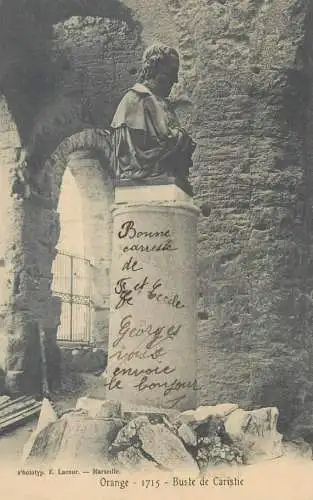 Bonne
carresse
de
Georges
vous
envoie
le bonjour
Phototyp. E. Lacour. — Marseille.
Orange - 1715 - Buste de Caristie